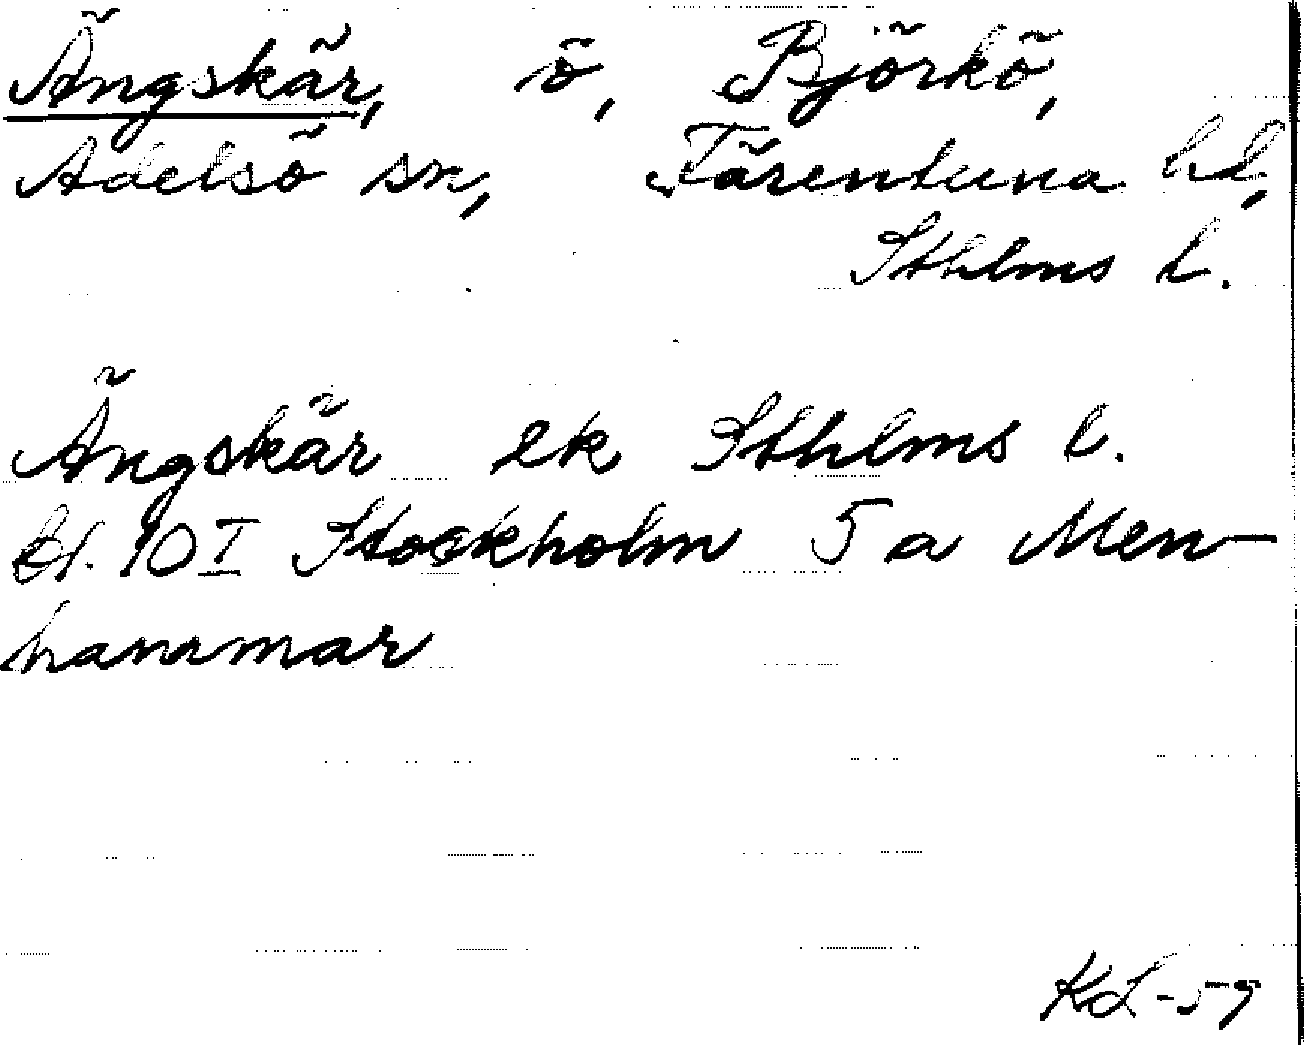 Ängskär, ö, Björkö,
Adelsö sn, Färentuna hd,
Sthlms l.
Ängskär ek Sthlms l.
bl. 10 I Stockholm 5 a Men-
hammar
KL-59